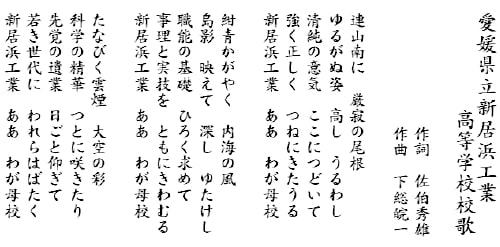 愛媛県立新居浜工業
高等学校校歌
作詞 佐伯秀雄
作曲 下総皖一
連山南に 厳寂の尾根
ゆるがぬ姿 高し うるわし
清純の意気 ここにつどいて
強く正しく つねにきたうる
新居浜工業 ああ わが母校
紺青かがやく 内海の風
島影 映えて 深し ゆたけし
職能の基礎 ひろく求めて
事理と実技を ともにきわむる
新居浜工業 ああ わが母校
たなびく雲煙 大空の彩
科学の精華 つとに咲きたり
先覚の遺業 日ごと仰ぎて
若き世代に われらはばたく
新居浜工業 ああ わが母校